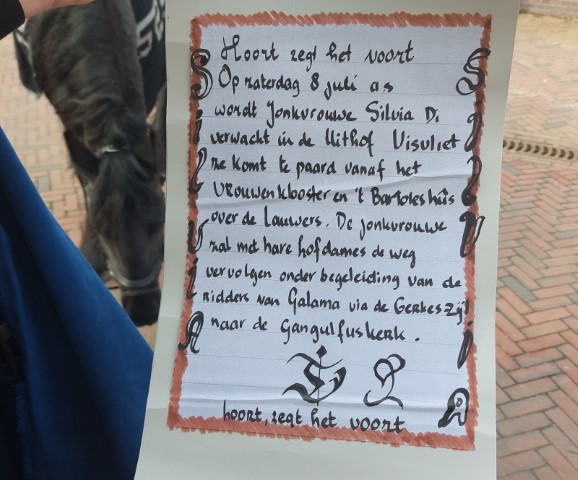 Hoort zegt het voort
Op zaterdag 8 juli as
wordt Jonkvrouwe Silvia D.
verwacht in de Uithof Visvliet
ze komt te paard vanaf het
Vrouwenklooster en 't Bartoleshûs
over de Lauwers. De jonkvrouwe
zal met hare hofdames de weg
vervolgen onder begeleiding van de
ridders van Galama via de Gerkeszijl
naar de Gangulfuskerk.
S D
hoort, zegt het voort
SILVIA
SILVIA